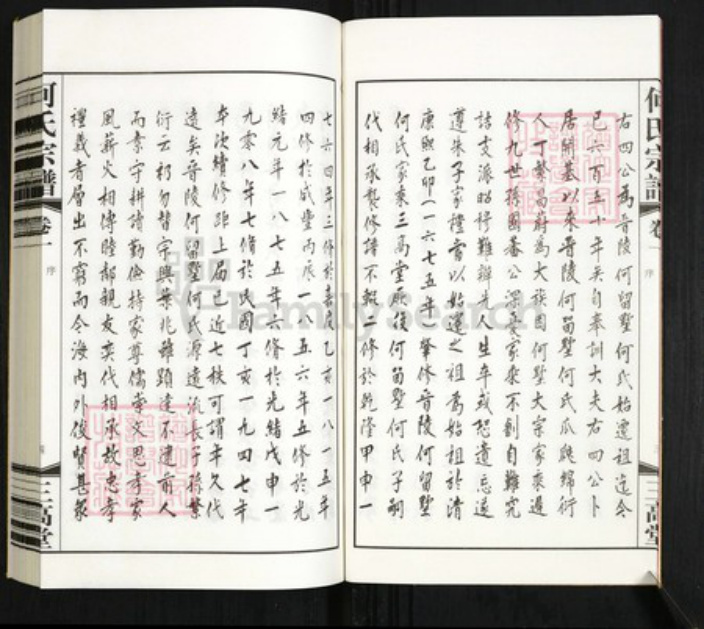 何氏宗譜
卷一
序
三高堂
右四公為晋陵何留墅何氏始遷祖迄今
已六百五十年矣自奉訓大夫右四公卜
居開基以来晋陵何留墅何氏瓜瓞綿衍
人丁繁昌蔚為大族因何墅大宗家乘遞
修九世孫國基公深憂家乘不創自難究
詰支派昭穆難辦先人生卒或恐遺忘遂
遵朱子家禮嘗以始遷之祖為始祖於清
康熙乙卯(一六七五年)肇修晋陵何留墅
何氏家乘三高堂厥後何留墅何氏子嗣
代相承襲修譜不輟二修於乾隆甲申一
七六四年三修於嘉慶乙亥一八一五年
四修於咸豐丙辰一八五六年五修於光
緒元年一八七五年六脩於光緒戊申一
九零八年七脩於民國丁亥一九四七年
本次續修距上届已近七秩可謂年久代
遠矣晋陵何留墅何氏源遠流長子孫繁
衍云礽勿替宇興業兆雖顯達不遺前人
而素守耕讀勤儉持家尊儒崇文思孝家
風薪火相傳睦鄰親友奕代相承故忠孝
禮義者層出不窮而今海内外俊賢甚衆
何氏宗譜
卷一
序
三高堂
FamilySearch